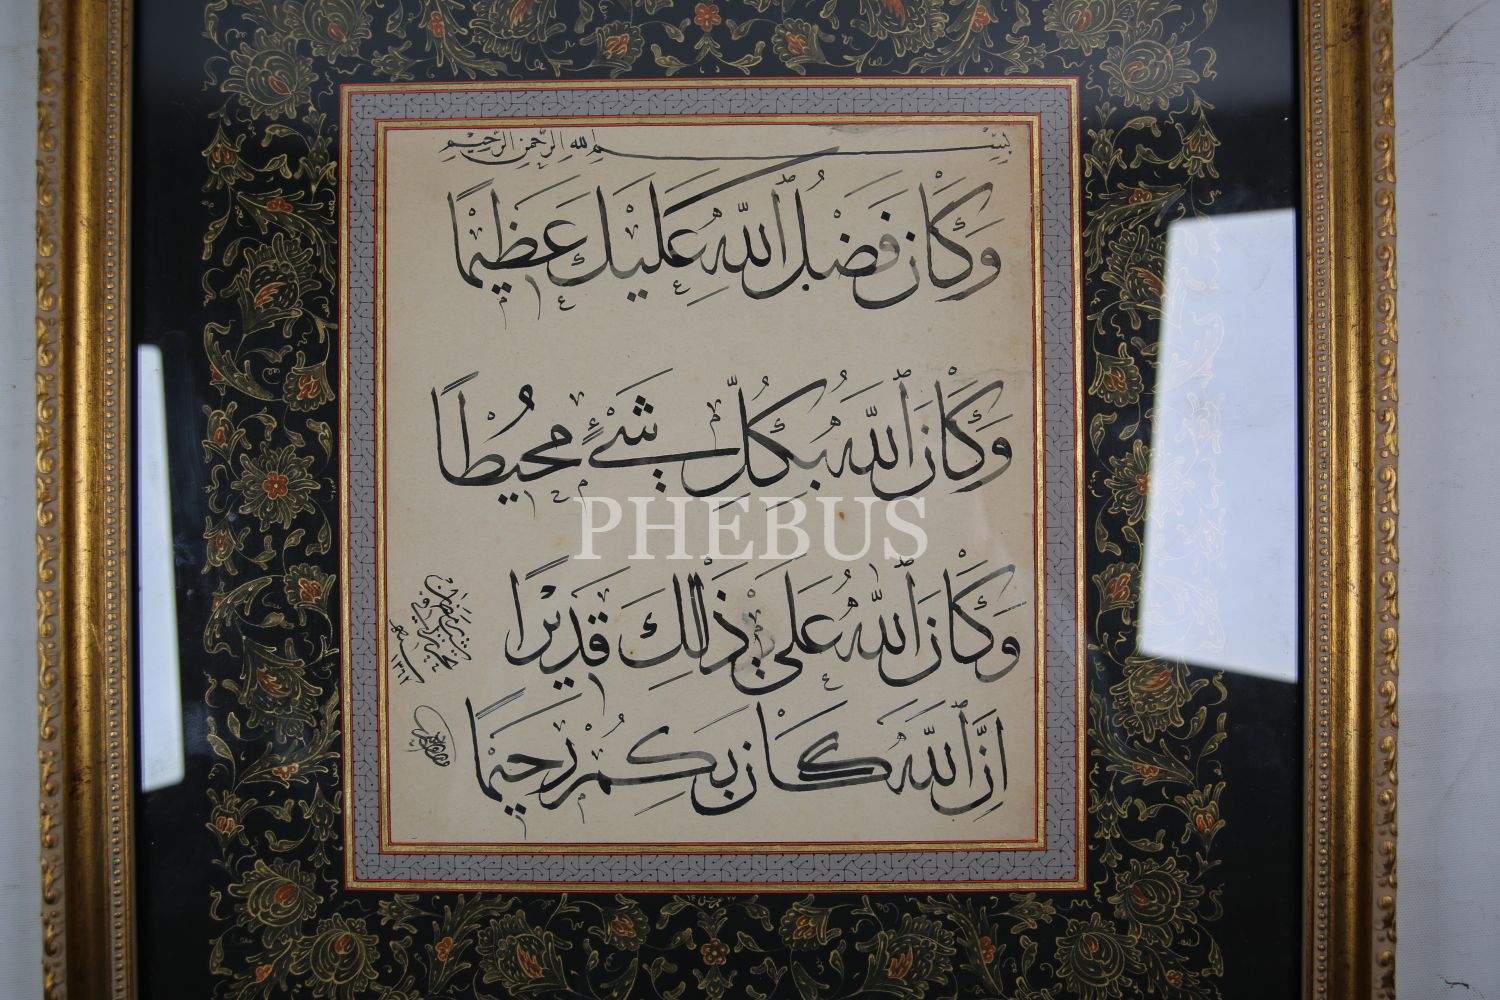 بِسْمِ اللهِ الرَّحْمنِ الرَّحِيْمِ
وَكَانَ فَضْلُ اللّٰهِ عَلَيْكَ عَظِيْمًا
وَكَانَ اللّٰهُ بِكُلِّ شَيْءٍ مُحِيْطًا
وَكَانَ اللّٰهُ عَلَى ذٰلِكَ قَدِيْرًا
اِنَّ اللّٰهَ كَانَ بِكُمْ رَحِيْمًا
سنه ١٣٦٢
PHEBUS